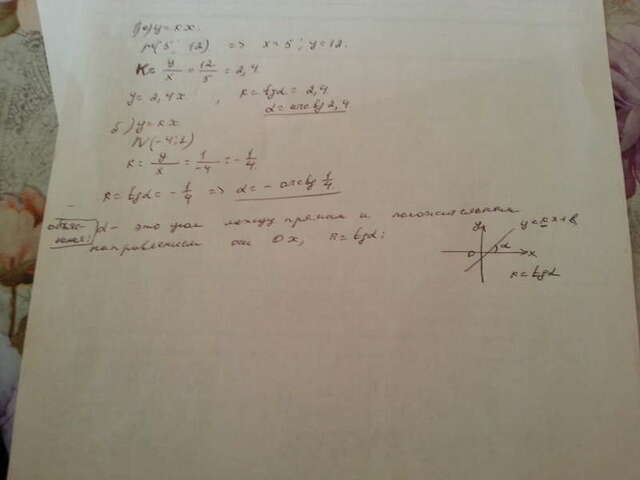 1) а) y = kx.
M(5; 12) => x=5; y=12.
K = y/x = 12/5 = 2,4.
y = 2,4x, k = tgα = 2,4
α = arctg 2,4
б) y = kx
N(-4; 1)
k = y/x = 1/-4 = -1/4.
k = tgα = -1/4 => α = -arctg 1/4
объяснения: α - это угол между прямой и положительным
направлением оси Ox, k = tgα;
y
y = kx + b
α
0
x
k = tgα